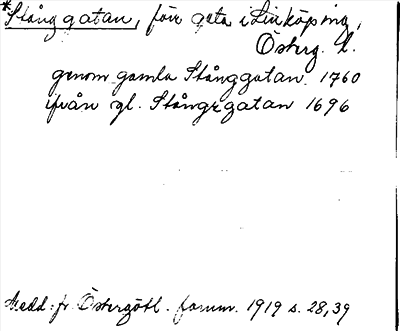 *Stånggatan, förr gata i Linköping,
Österg. l.
genom gamla Stånggatan. 1760
ifrån gl. Stångegatan 1696
Medd. fr. Östergötl. fornm. 1919 s. 28, 39